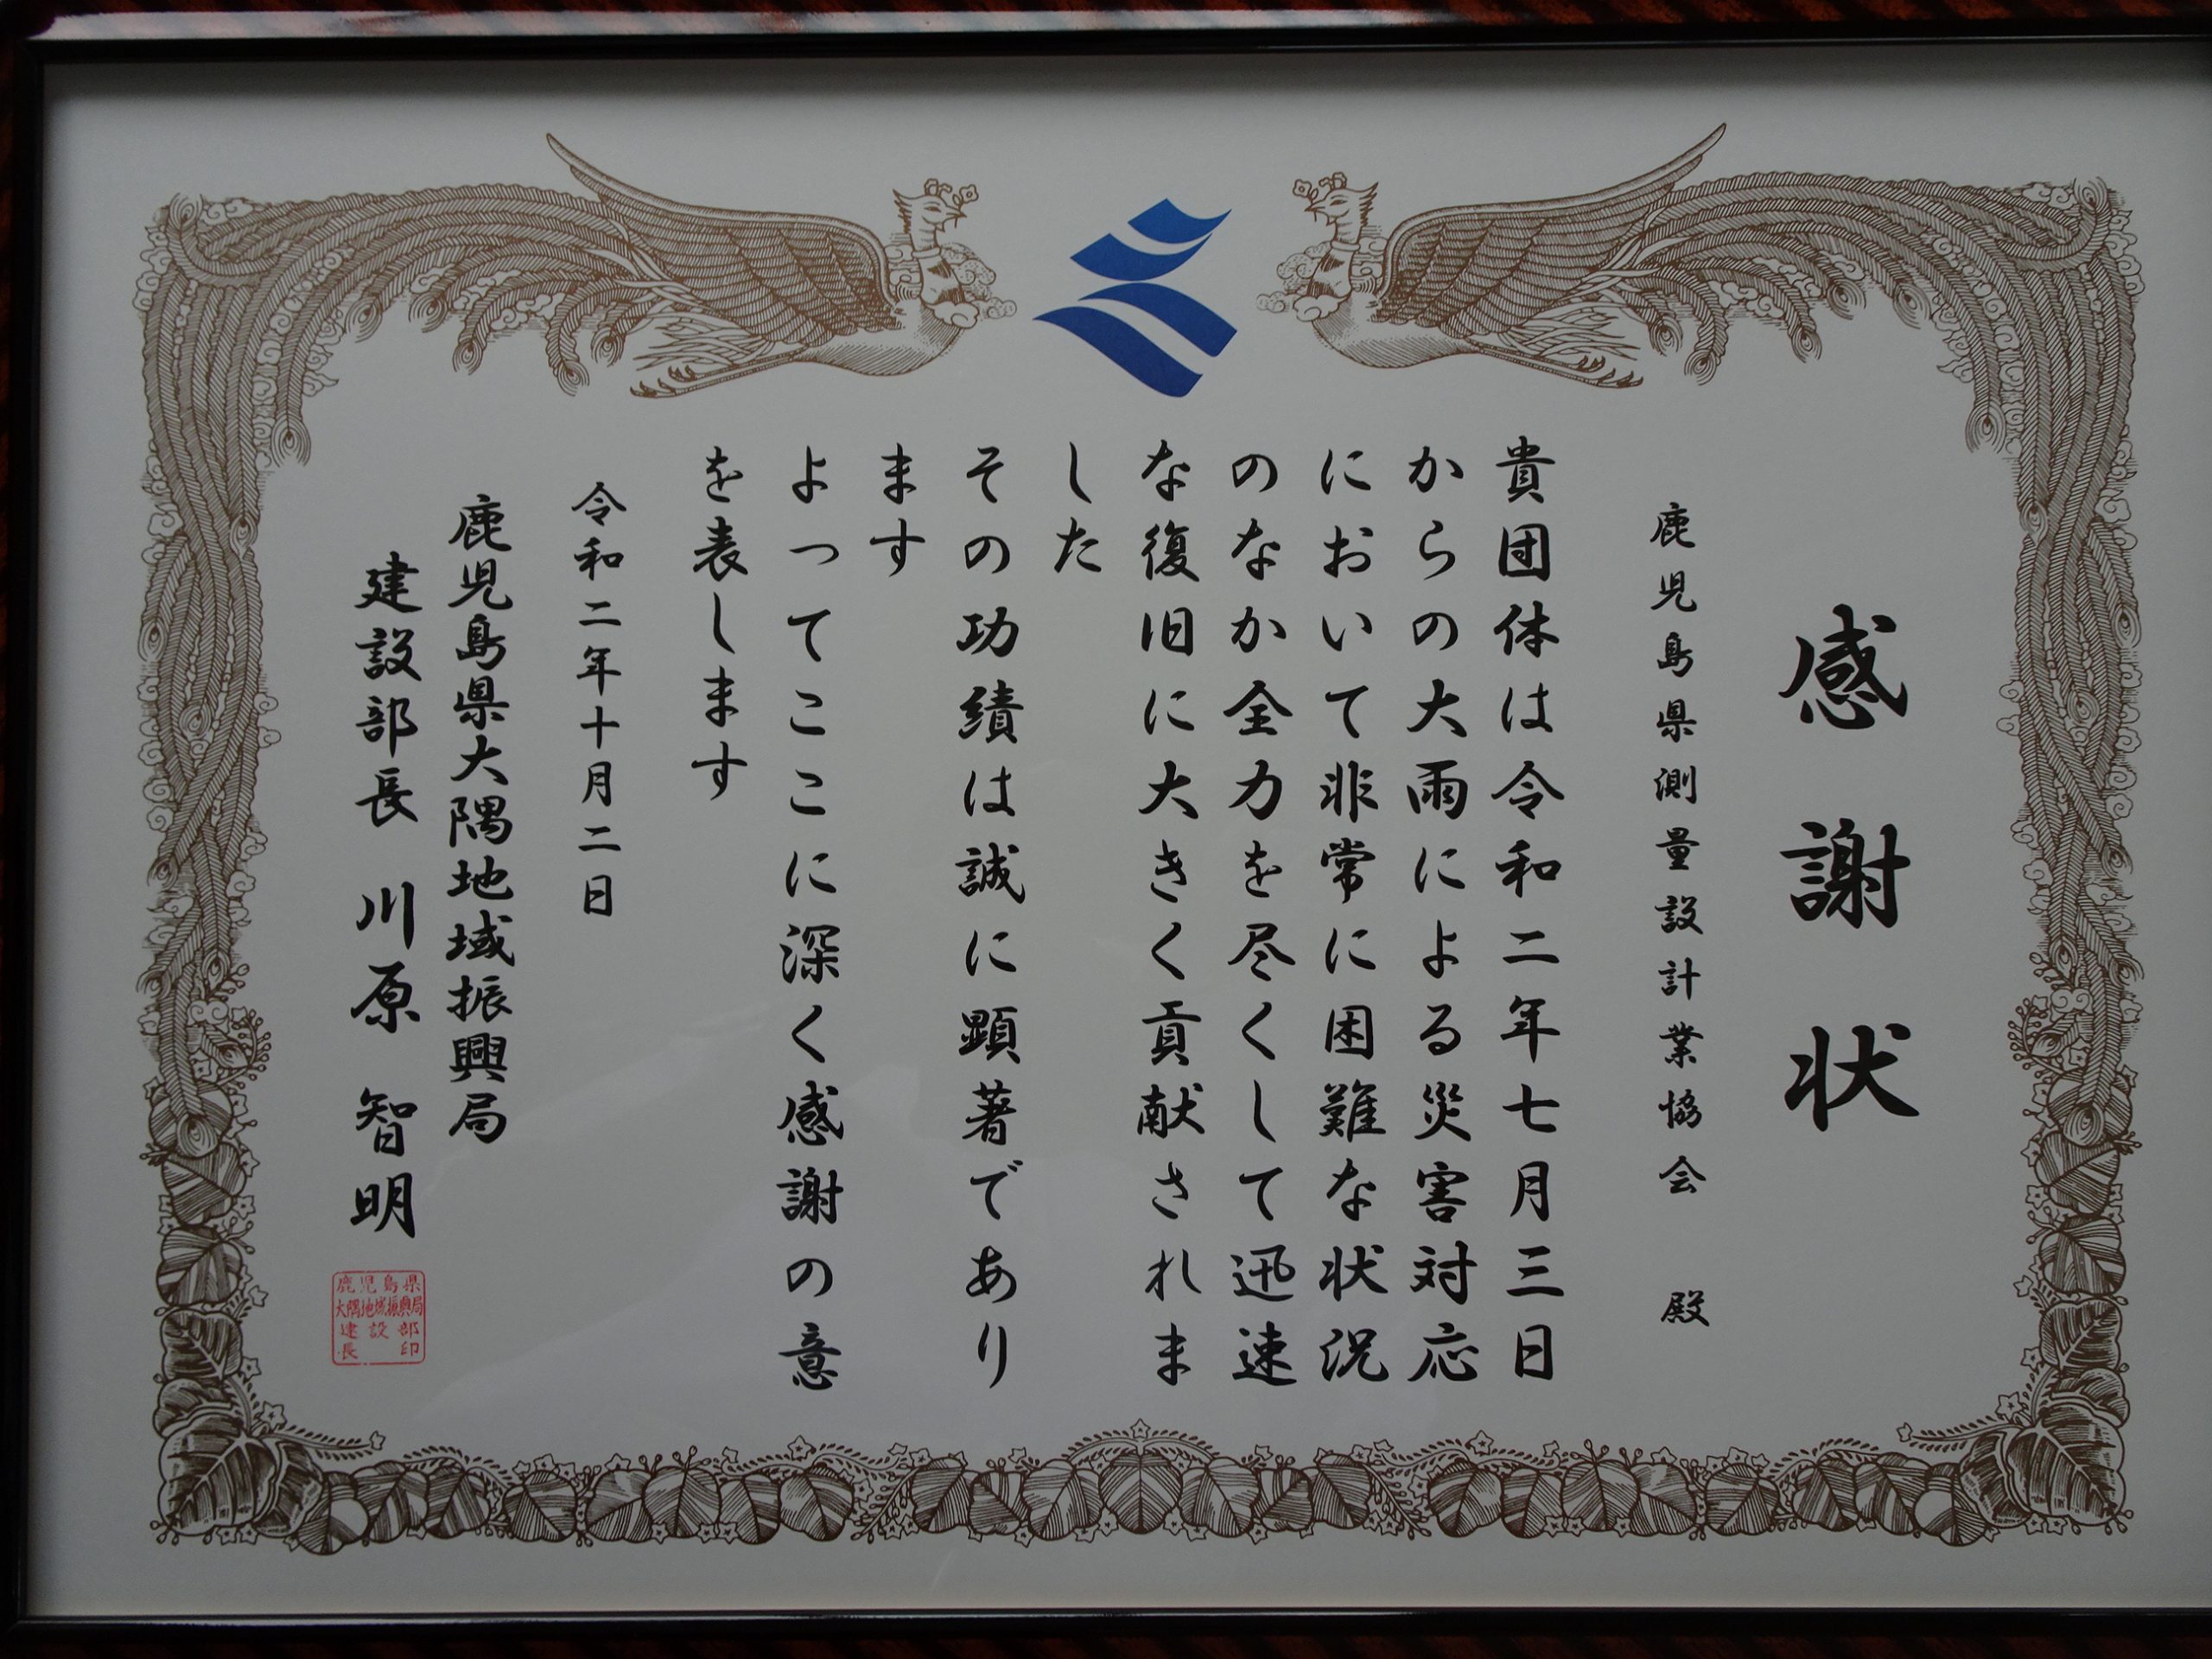 感謝状
鹿児島県測量設計業協会 殿
貴団体は令和二年七月三日
からの大雨による災害対応
において非常に困難な状況
のなか全力を尽くして迅速
な復旧に大きく貢献されま
した
その功績は誠に顕著であり
ます
よってここに深く感謝の意
を表します
令和二年十月二日
鹿児島県大隅地域振興局
建設部長 川原 智明
鹿児島県
大隅地域振興局
建設部
長印